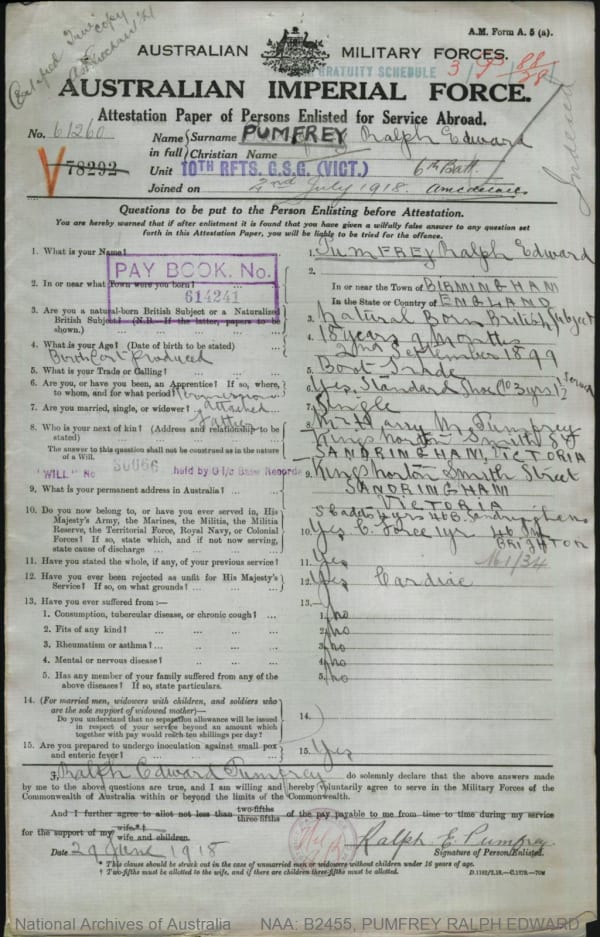 Certified True copy
A.M. Form A. 5 (a).
AUSTRALIAN MILITARY FORCES.
GRATUITY SCHEDULE
AUSTRALIAN IMPERIAL FORCE.
Indexed
Attestation Paper of Persons Enlisted for Service Abroad.
No. 61260
78292
Name in full
Surname PUMFREY Ralph Edward
Christian Name
Unit 10TH RFTS. G.S.G. (VICT.) 6th Batt.
Joined on 2nd July 1918.
Questions to be put to the Person Enlisting before Attestation.
You are hereby warned that if after enlistment it is found that you have given a wilfully false answer to any question set
forth in this Attestation Paper, you will be liable to be tried for the offence.
1. What is your Name? 1. PUMFREY Ralph Edward
PAY BOOK. No.
614241
2. In or near what Town were you born? 2. In or near the Town of BIRMINGHAM
In the State or Country of ENGLAND
3. Are you a natural-born British Subject or a Naturalized British Subject? (N.B.—If the latter, papers to be shown.) 3. Natural Born British Subject
4. What is your Age? (Date of birth to be stated) 4. 18 years 9 months
2nd September 1899
Birth Cert Produced
5. What is your Trade or Calling? 5. Boot Trade
6. Are you, or have you been, an Apprentice? If so, where, to whom, and for what period? 6. Yes, Standard Shoe Co 3 yrs 1/2
7. Are you married, single, or widower? 7. Single
Permission attached
Father
8. Who is your next of kin? (Address and relationship to be stated) 8. Mr Harry M. Pumfrey
Kings Norton Smith St
SANDRINGHAM, VICTORIA
The answer to this question shall not be construed as in the nature of a Will.
"WILL" No 30666 held by O i/c Base Records
9. What is your permanent address in Australia? 9. Kings Norton Smith Street
SANDRINGHAM
VICTORIA
10. Do you now belong to, or have you ever served in, His Majesty's Army, the Marines, the Militia, the Militia Reserve, the Territorial Force, Royal Navy, or Colonial Forces? If so, state which, and if not now serving, state cause of discharge 10. Yes C. Force 1yr 46
BRIGHTON
11. Have you stated the whole, if any, of your previous service? 11. Yes
12. Have you ever been rejected as unfit for His Majesty's Service? If so, on what grounds? 12. Yes Cardiac
13. Have you ever suffered from:— 13.—
1. Consumption, tubercular disease, or chronic cough? 1. No
2. Fits of any kind? 2. No
3. Rheumatism or asthma? 3. No
4. Mental or nervous disease? 4. No
5. Has any member of your family suffered from any of the above diseases? If so, state particulars. 5. No
14. (For married men, widowers with children, and soldiers who are the sole support of widowed mother)—
Do you understand that no separation allowance will be issued in respect of your service beyond an amount which together with pay would reach ten shillings per day? 14.
15. Are you prepared to undergo inoculation against small pox and enteric fever? 15. Yes
I, Ralph Edward Pumfrey do solemnly declare that the above answers made
by me to the above questions are true, and I am willing and hereby voluntarily agree to serve in the Military Forces of the
Commonwealth of Australia within or beyond the limits of the Commonwealth.
And I further agree to allot not less than two-fifths three-fifths of the pay payable to me from time to time during my service
for the support of my wife*† wife and children.
Date 29 June 1918
Ralph E. Pumfrey
Signature of Person Enlisted.
* This clause should be struck out in the case of unmarried men or widowers without children under 16 years of age.
† Two-fifths must be allotted to the wife, and if there are children three-fifths must be allotted.
National Archives of Australia NAA: B2455, PUMFREY RALPH EDWARD